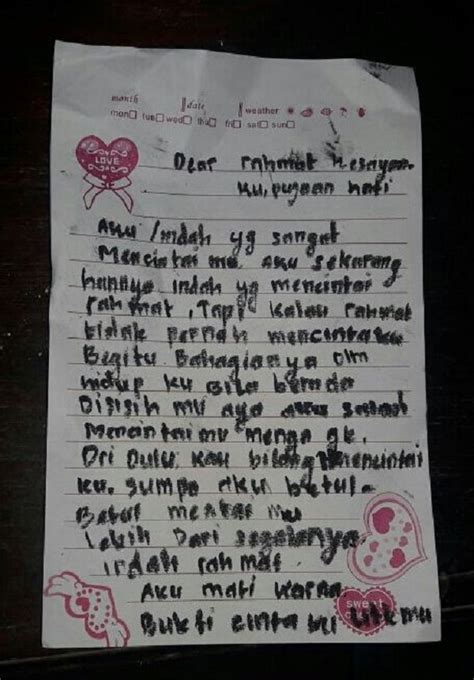 month date weather
mon tue wed thu fri sat sun
LOVE
Dear rahmat kesayan.
ku, pujaan hati
Aku /indah yg sangat
Mencintai mu aku sekarang
hannya indah yg mencintai
rahmat, Tapi kalau rahmat
tidak pernah mencintaku
Begitu Bahagianya dlm
hidup ku Bila berada
Disisih mu aya aku sangat
Mencintaimu menga gk.
Dri Dulu kau bilang mencintai
ku. sumpa aku betul-
Betul mentai mu
lebih Dari segalanya.
indah rahmat
Aku mati karna
sweet
Bukti cinta ku utkmu